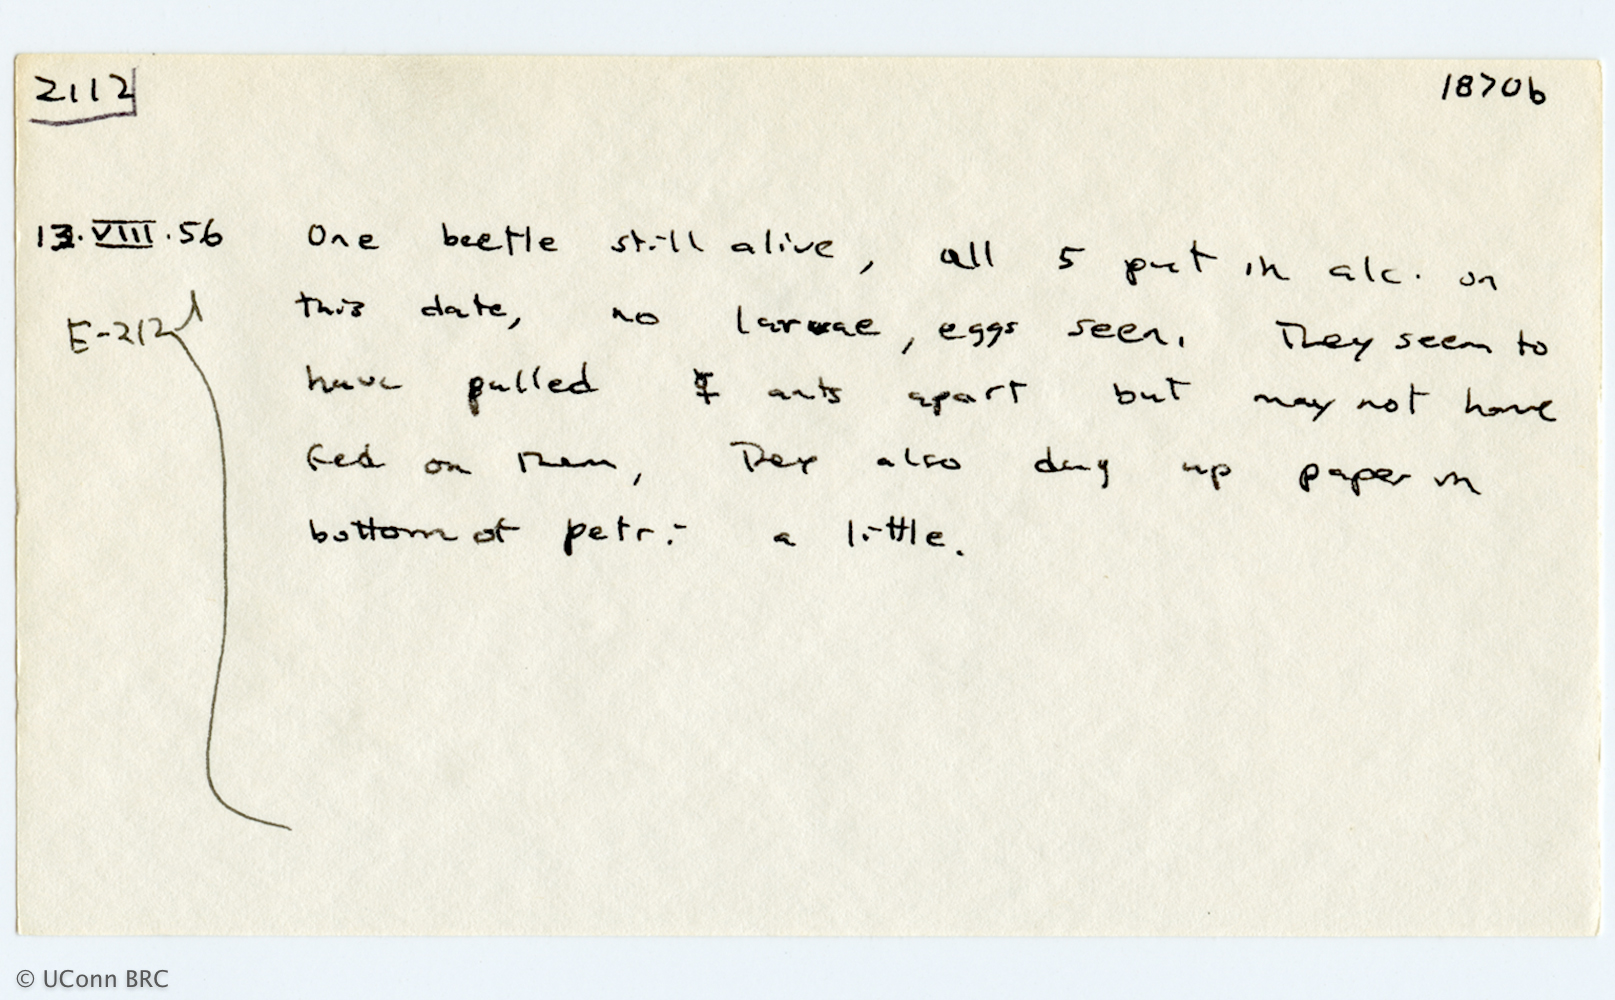 2112
1870b
13.VIII.56 One beetle still alive, all 5 put in alc. on
E-212 this date, no larvae, eggs seen. They seem to
have pulled ☿ ants apart but may not have
fed on them, They also dug up paper in
bottom of petri a little.
© UConn BRC